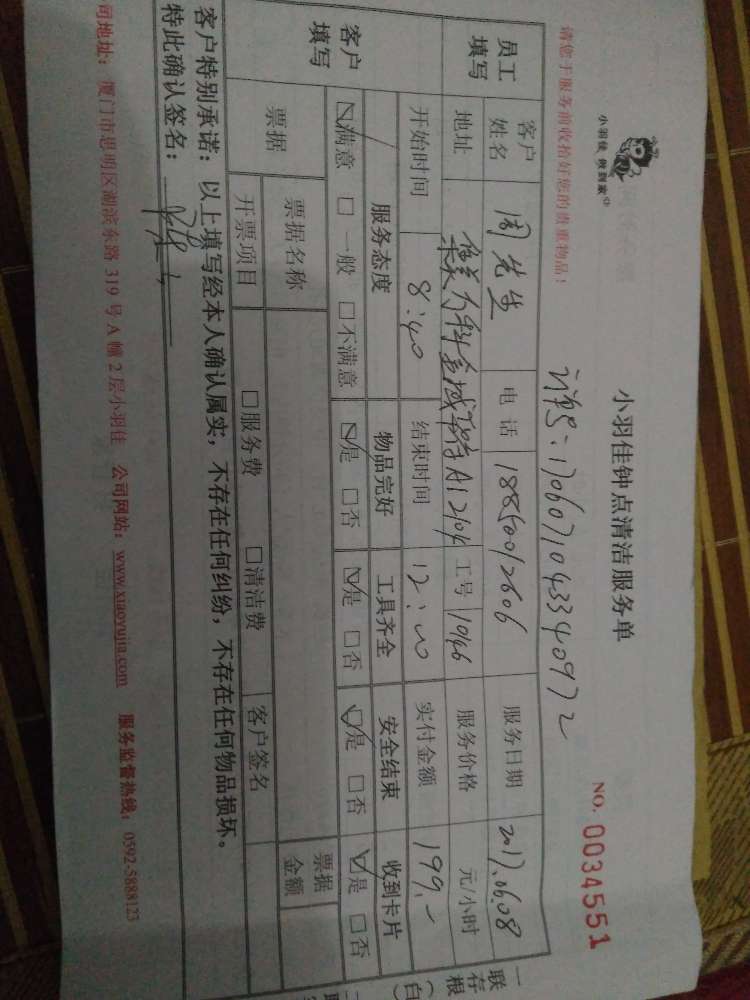 小羽佳 做到家
小羽佳钟点清洁服务单
NO. 0034551
请您于服务前收拾好您的贵重物品！
订单号：17060710433340972
员工填写 客户姓名 周先生 电话 18850012606 服务日期 2017.06.08
地址 集美万科金域华府A12104 工号 1046 服务价格 元/小时
开始时间 8:40 结束时间 12:00 实付金额 199.-
客户填写 服务态度 物品完好 工具齐全 安全结束 收到卡片
满意 □一般 □不满意 是 □否 是 □否 是 □否 是 □否
票据 票据名称 票据金额
开票项目 □服务费 □清洁费 客户签名
客户特别承诺：以上填写经本人确认属实，不存在任何纠纷，不存在任何物品损坏。
特此确认签名：
司地址：厦门市思明区湖滨东路 319 号 A 幢 2 层小羽佳 公司网站：www.xiaoyujia.com 服务监督热线：0592-5888123
一联存根（白）